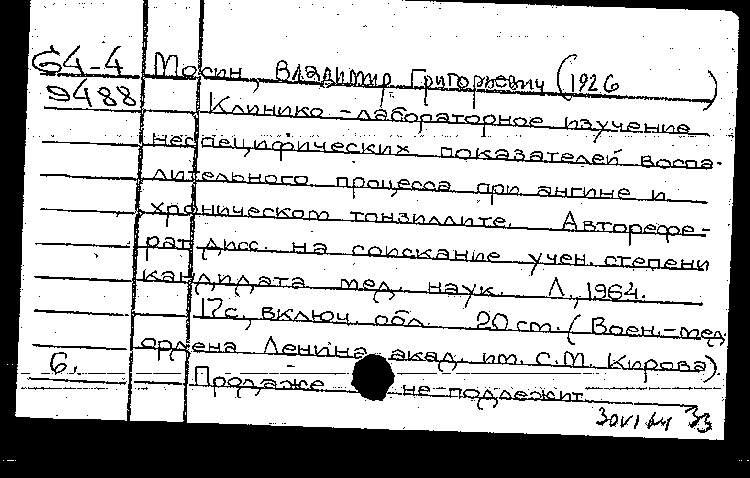 64-4 Мосин, Владимир Григорьевич (1926 )
9488 Клинико-лабораторное изучение
неспецифических показателей воспа-
лительного процесса при ангине и
хроническом тонзиллите. Авторефе-
рат дисс. на соискание учен. степени
кандидата мед. наук. Л., 1964.
17с., включ. обл. 20 см. (Воен.-мед.
ордена Ленина акад. им. С.М. Кирова).
6. Продаже не подлежит
30VI64 33